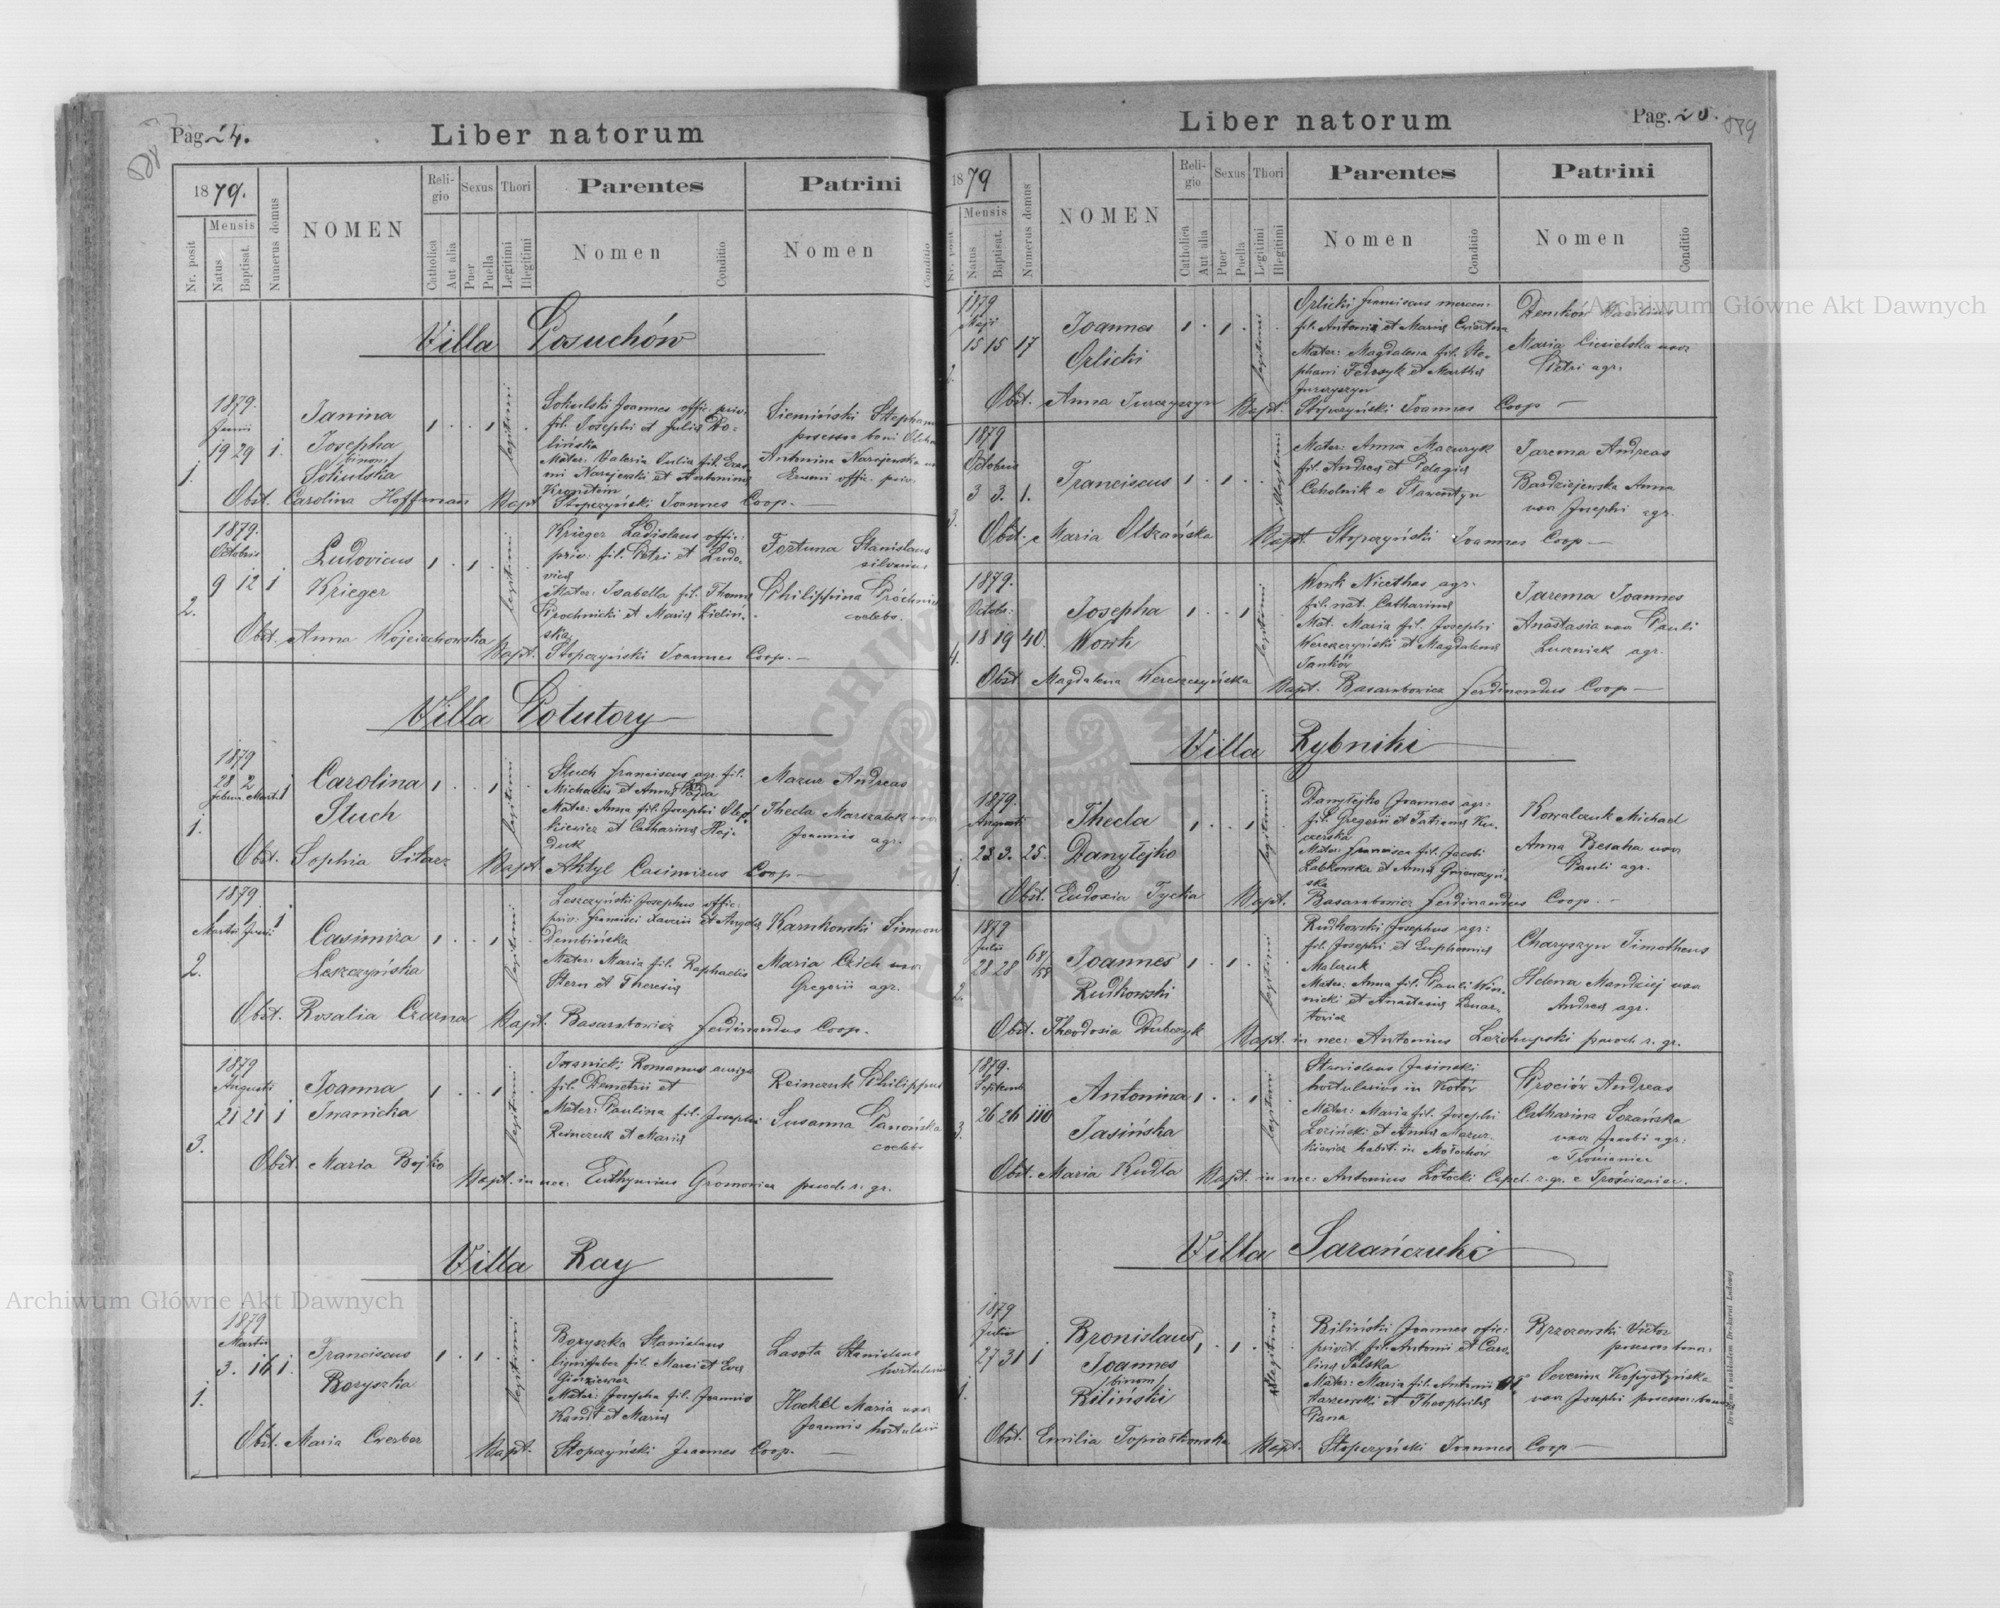 Pag. 24.
Liber natorum
1879.
Nr. posit
Mensis
Natus
Baptisat.
Numerus domus
NOMEN
Religio
Catholica
Aut alia
Sexus
Puer
Puella
Thori
Legitimi
Illegitimi
Parentes
Nomen
Conditio
Patrini
Nomen
Conditio
Villa Posuchów
1879.
Junii
19 29 1.
1.
Janina
Josepha
/binom/
Sokulska
legitimi
Sokulski Joannes offic. priv.
fil. Josephi et Julia Wo-
lińska
Mater: Valeria Julia fil. Eras-
mi Narajewski et Antonina
Kronstein
Siemiński Stephan
possessor boni
Antonina Narajewska
Erasmi offic. priv.
Obst. Carolina Hoffman Bapt. Stopczyński Joannes Coop.
1879.
Octobris
9 12 1
2.
Ludovicus
Krieger
legitimi
Krieger Ladislaus offic:
priv. fil. Petri et Ludo-
vica
Mater: Isabella fil. Thoma
Prochnicki et Maria Zieliń-
ska
Fortuna Stanislaus
silvarius
Philippina Próchnicka
coelebs.
Obst. Anna Wojciechowska
Bapt. Stopczyński Joannes Coop.
Villa Potutory
1879
28 2 1
Febru Marti
1.
Carolina
Stuch
legitimi
Stuch Franciscus agr. fil.
Michaelis et Anna
Mater: Anna fil. Josephi
et Catharina Haj-
duk
Mazur Andreas
Thecla Marszałek uxor
Joannis agr.
Obst. Sophia Bapt. Aktyl Casimirus Coop.
1879
1
Martii Junii
2.
Casimira
Leszczyńska
legitimi
Leszczyński Josephus offic:
priv. Francisci Xaverii et Angela
Dembińska
Mater: Maria fil. Raphaelis
Stern et Theresia
Karnkowski Simeon
Maria Czich uxor
Gregorii agr.
Obst. Rosalia Czarna Bapt. Basarabowicz Ferdinandus Coop.
1879
Augusti
21 21 1
3.
Joanna
Iwanicka
legitimi
Iwanicki Romanus auriga
fil. Demetrii et
Mater: Paulina fil. Josephi
Reinczuk et Maria
Reinczuk Philippus
Susanna Panońska
coelebs
Obst. Maria Bojko
Bapt. in nec: Euthymius Gromowicz paroch. r. gr.
Villa Ray
1879
Martii
3. 16 1.
1.
Franciscus
Boryszka
legitimi
Boryszka Stanislaus
lignifaber fil. Marci et Eva
Mater: Josepha fil. Joannis
Kandt et Maria
Lasota Stanislaus
hortulanus
Hackel Maria uxor
Joannis hortulani
Obst. Maria Czerber
Bapt. Stopczyński Joannes Coop.
Pag. 25.
589
Liber natorum
1879
Nr. posit
Mensis
Natus
Baptisat.
Numerus domus
NOMEN
Religio
Catholica
Aut alia
Sexus
Puer
Puella
Thori
Legitimi
Illegitimi
Parentes
Nomen
Conditio
Patrini
Nomen
Conditio
1879
Maji
15 15 17
2.
Joannes
Orlicki
legitimi
Orlicki Franciscus mercen:
fil. Antonii et Maria
Mater: Magdalena fil. Ste-
phani Fedczyk et Martha
Jurczyszyn
Demków Basilius
Maria Ciesielska uxor
Petri agr.
Obst. Anna Jurczyszyn Bapt. Stopczyński Joannes Coop
1879
Octobris
3 3. 1.
3.
Franciscus
illegitimi
Mater: Anna Mazuryk
fil. Andrea et Pelagia
Ceholnik e Sławentyn
Jarema Andreas
Bardziejewska Anna
uxor Josephi agr.
Obst. Maria Olszańska Bapt. Stopczyński Joannes Coop
1879.
Octobr:
18 19 40.
4.
Josepha
Wowk
legitimi
Wowk Nicethas agr.
fil. nat. Catharina
Mat. Maria fil. Josephi
Wereszczyński et Magdalena
Jankow
Jarema Joannes
Anastasia uxor Pauli
agr.
Obst. Magdalena Wereszczyńska Bapt. Basarabowicz Ferdinandus Coop
Villa Rybniki
1879.
Augusti
23 3. 25.
1.
Thecla
Danyłejko
legitimi
Danyłejko Joannes agr:
fil. Gregorii et Tatiana
Mater: Francisca fil. Jacobi
Labkowska et Anna
Kowalczuk Michael
Anna Besaha uxor
Pauli agr.
Obst. Eudoxia Tycka Bapt. Basarabowicz Ferdinandus Coop.
1879
Julii
28 28 68/58
2.
Joannes
Rudkowski
legitimi
Rudkowski Josephus agr:
fil. Josephi et Euphemia
Malczuk
Mater: Anna fil. Pauli Win-
nicki et Anastasia Lenar-
towicz
Charyszyn Timotheus
Helena Mandziej uxor
Andrea agr.
Obst. Theodosia Bapt. in nec: Antonius paroch. r. gr.
1879.
Septemb
26 26 110
3.
Antonina
Jasińska
legitimi
Stanislaus Jasinski
hortulanus in Kotów
Mater: Maria fil. Josephi
Łoziński et Anna Mazur-
kiewicz habit. in
Prociów Andreas
Catharina Sozańska
uxor Jacobi agr:
e Trościaniec
Obst. Maria Kudła Bapt. in nec: Antonius Łotocki Capel. r. gr. e Trościaniec.
Villa Sarańczuki
1879
Julii
27 31 1
1.
Bronislaus
Joannes
/binom/
Biliński
illegitimi
Biliński Joannes offic:
privat. fil. Antonii et Caro-
lina
Mater: Maria fil. Antonii
et Theophila
Pana
Brzozowski Victor
possessor bonor.
Severina Kopystyńska
uxor Josephi possessor. bonor.
Obst. Emilia Bapt. Stopczyński Joannes Coop
Archiwum Główne Akt Dawnych
Archiwum Główne Akt Dawnych